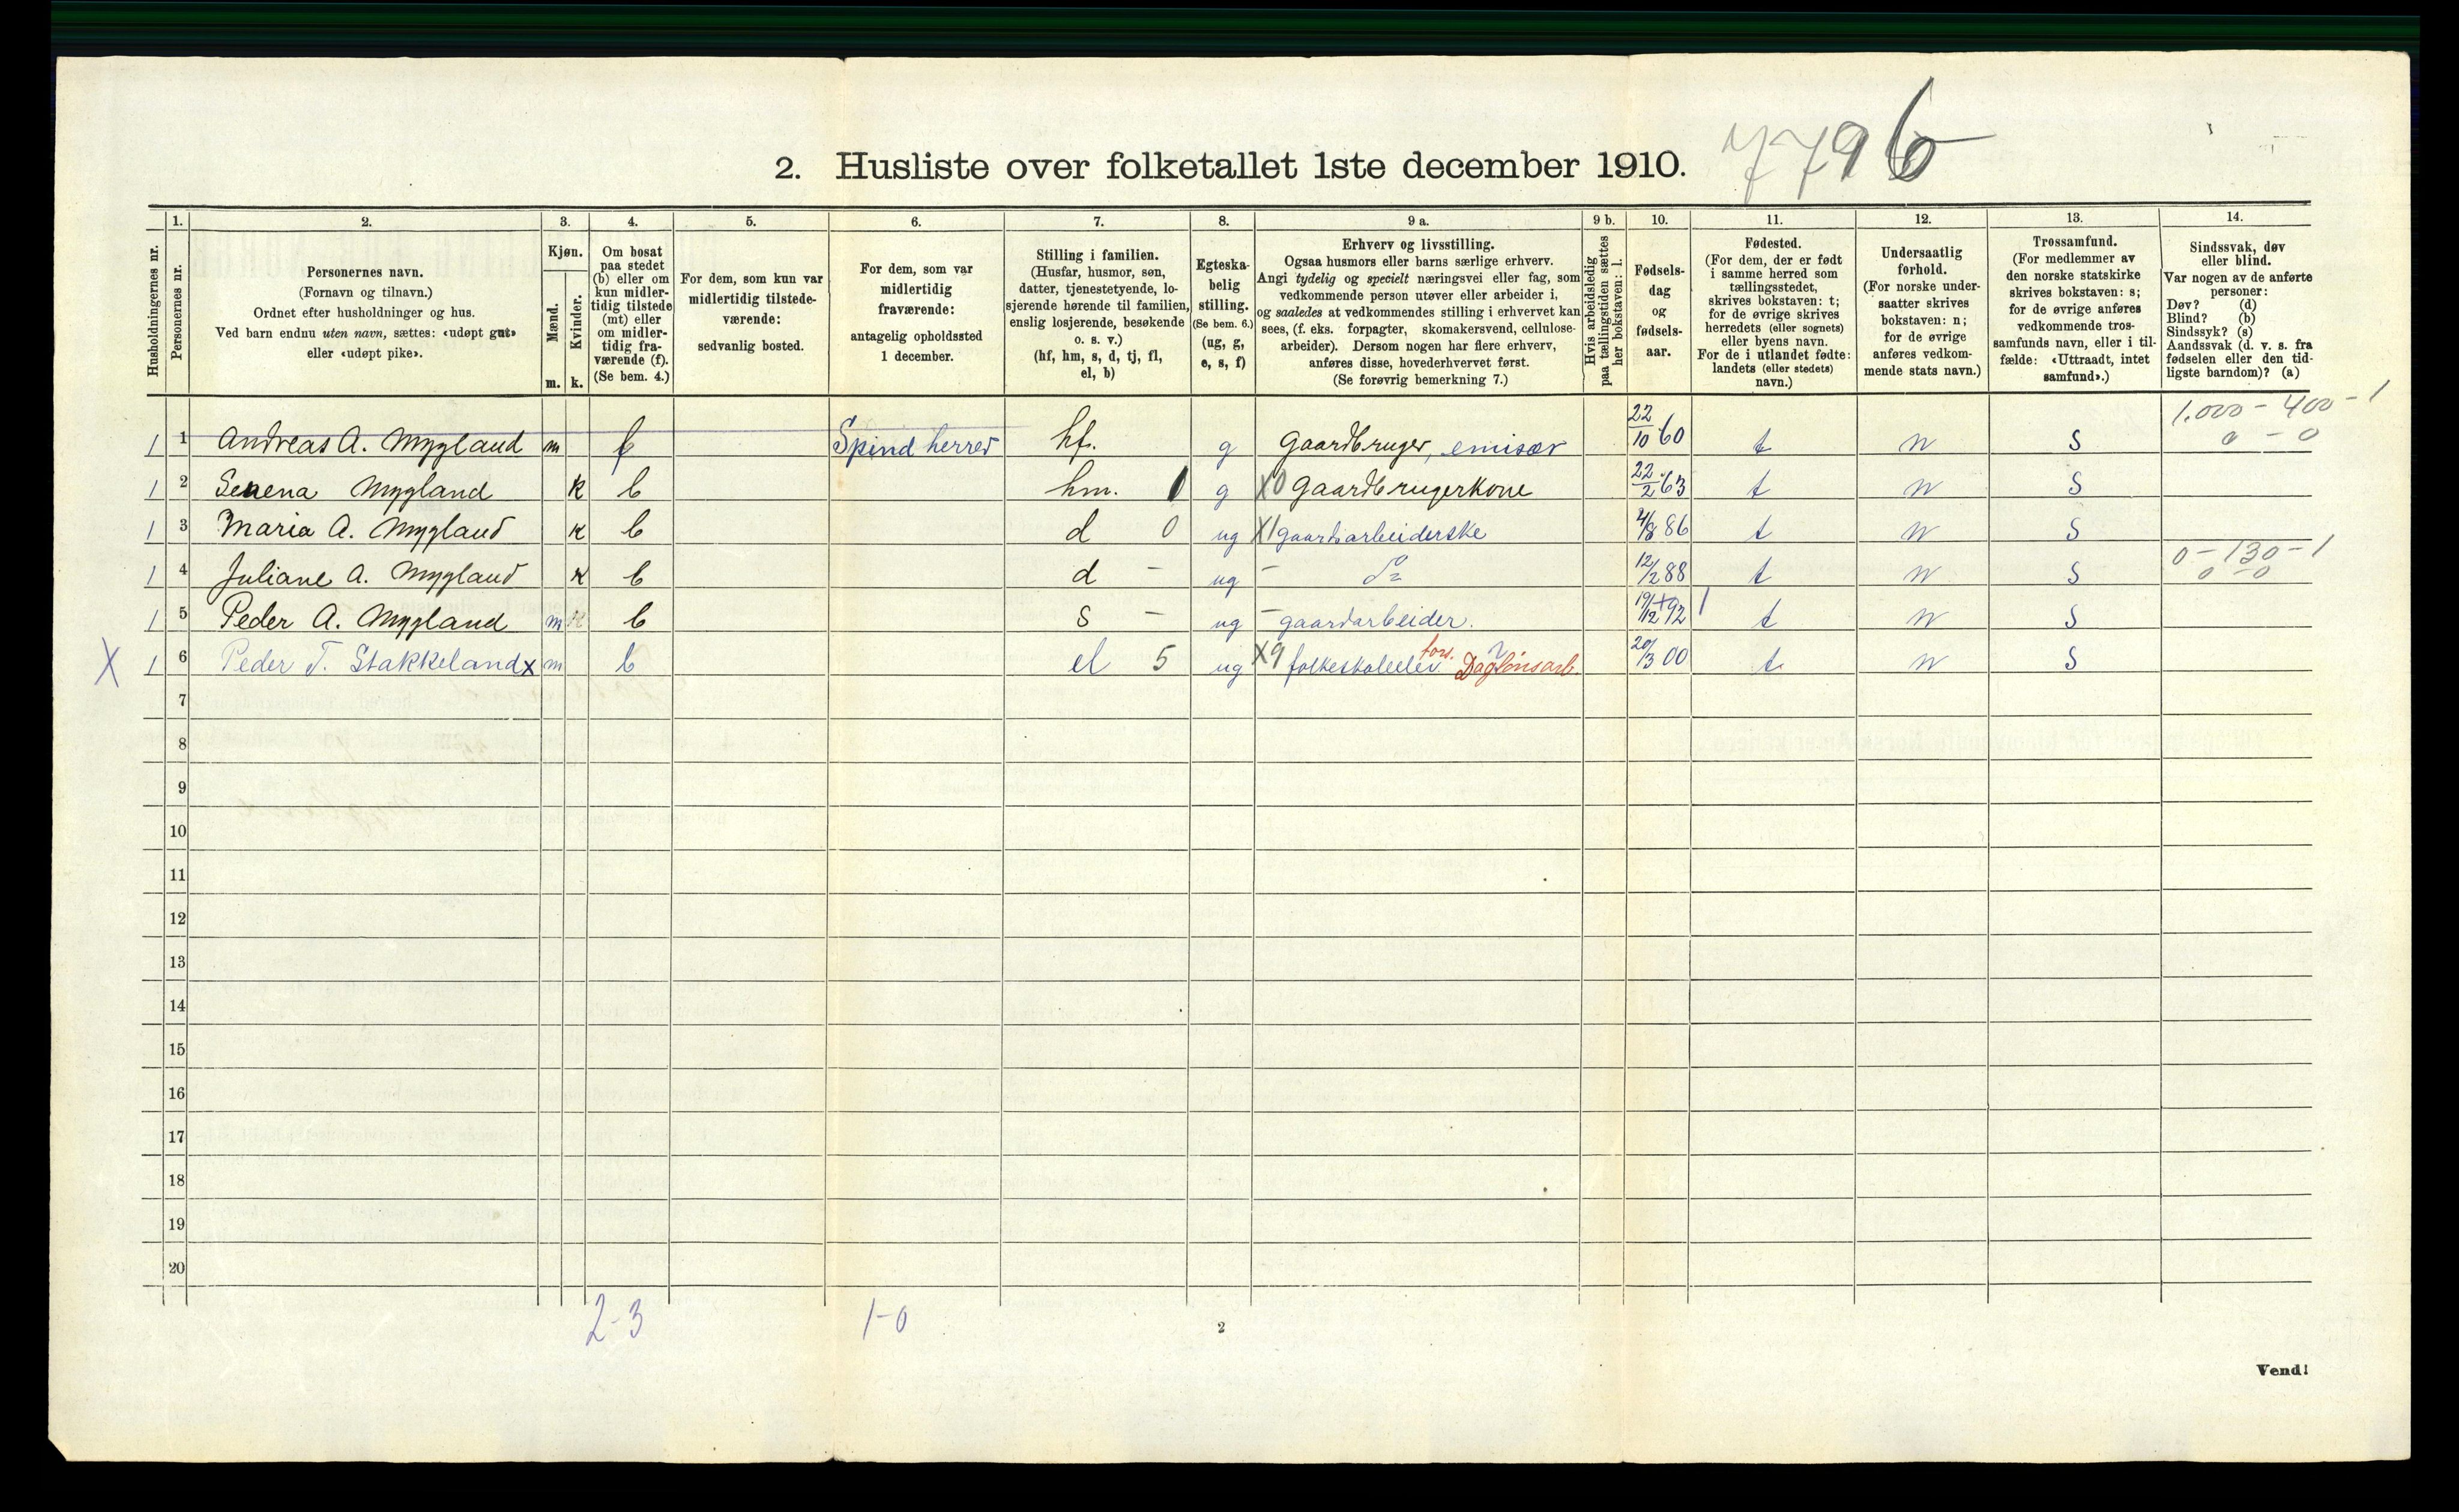 2. Husliste over folketallet 1ste december 1910. 7796
Husholdningernes nr.
1. Personernes nr.
2. Personernes navn. (Fornavn og tilnavn.) Ordnet efter husholdninger og hus. Ved barn endnu uten navn, sættes: «udøpt gut» eller «udøpt pike».
3. Kjøn. Mænd. m. Kvinder. k.
4. Om bosat paa stedet (b) eller om kun midlertidig tilstede (mt) eller om midlertidig fraværende (f). (Se bem. 4.)
5. For dem, som kun var midlertidig tilstedeværende: sedvanlig bosted.
6. For dem, som var midlertidig fraværende: antagelig opholdssted 1 december.
7. Stilling i familien. (Husfar, husmor, søn, datter, tjenestetyende, losjerende hørende til familien, enslig losjerende, besøkende o. s. v.) (hf, hm, s, d, tj, fl, el, b)
8. Egteskabelig stilling. (Se bem. 6.) (ug, g, e, s, f)
9 a. Erhverv og livsstilling. Ogsaa husmors eller barns særlige erhverv. Angi tydelig og specielt næringsvei eller fag, som vedkommende person utøver eller arbeider i, og saaledes at vedkommendes stilling i erhvervet kan sees, (f. eks. forpagter, skomakersvend, cellulose-arbeider). Dersom nogen har flere erhverv, anføres disse, hovederhvervet først. (Se forøvrig bemerkning 7.)
9 b. Hvis arbeidsledig paa tællingstiden sættes her bokstaven: l.
10. Fødselsdag og fødselsaar.
11. Fødested. (For dem, der er født i samme herred som tællingsstedet, skrives bokstaven: t; for de øvrige skrives herredets (eller sognets) eller byens navn. For de i utlandet fødte: landets (eller stedets) navn.)
12. Undersaatlig forhold. (For norske undersaatter skrives bokstaven: n; for de øvrige anføres vedkommende stats navn.)
13. Trossamfund. (For medlemmer av den norske statskirke skrives bokstaven: s; for de øvrige anføres vedkommende trossamfunds navn, eller i tilfælde: «Uttraadt, intet samfund».)
14. Sindssvak, døv eller blind. Var nogen av de anførte personer: Døv? (d) Blind? (b) Sindssyk? (s) Aandssvak (d. v. s. fra fødselen eller den tidligste barndom)? (a)
1,000 - 400 - 1
1 1 Andreas A. Mygland m f Spind herred hf. g Gaardbruger, emisær 22/10 60 t n S 0 - 0
1 2 Serena Mygland k b hm. g X0 Gaardbrugerkone 22/2 63 t n S
1 3 Maria A. Mygland k b d 0 ug X1 gaardsarbeiderske 4/8 86 t n S
0 - 130 - 1
1 4 Juliane A. Mygland k b d - ug - do 12/2 88 t n S 0 - 0
1 5 Peder A. Mygland m k b s - ug - gaardarbeider. 19/12 92 t n S
X 1 6 Peder T. Stakkeland x m b el 5 ug X9 folkeskoleelev fors. Daglønsarb. 20/3 00 t n S
7
8
9
10
11
12
13
14
15
16
17
18
19
20
2-3 1-0
2
Vend!